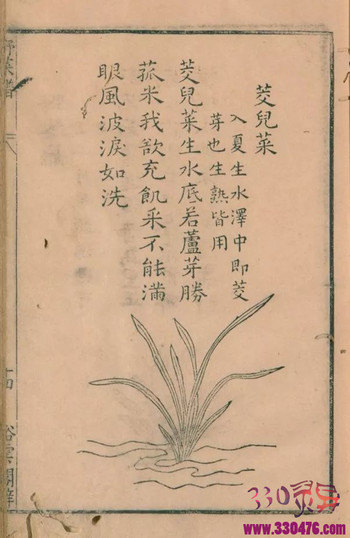 茭兒菜
入夏生水澤中即茭
芽也生熟皆用
茭兒菜生水底若蘆芽勝
菰米我欲充飢采不能滿
眼風波淚如洗
330灵异
www.330476.com